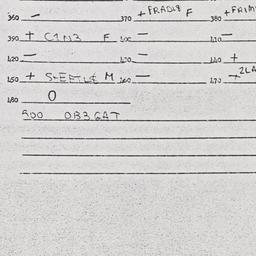 360 – 370 + FRAGLE F 380 + FRIM
390 + C1N3 F 400 – 410 –
420 – 430 – 440 +
450 + SEETLE M 460 – 470 + 2LA
480 0
500 OB3GAT